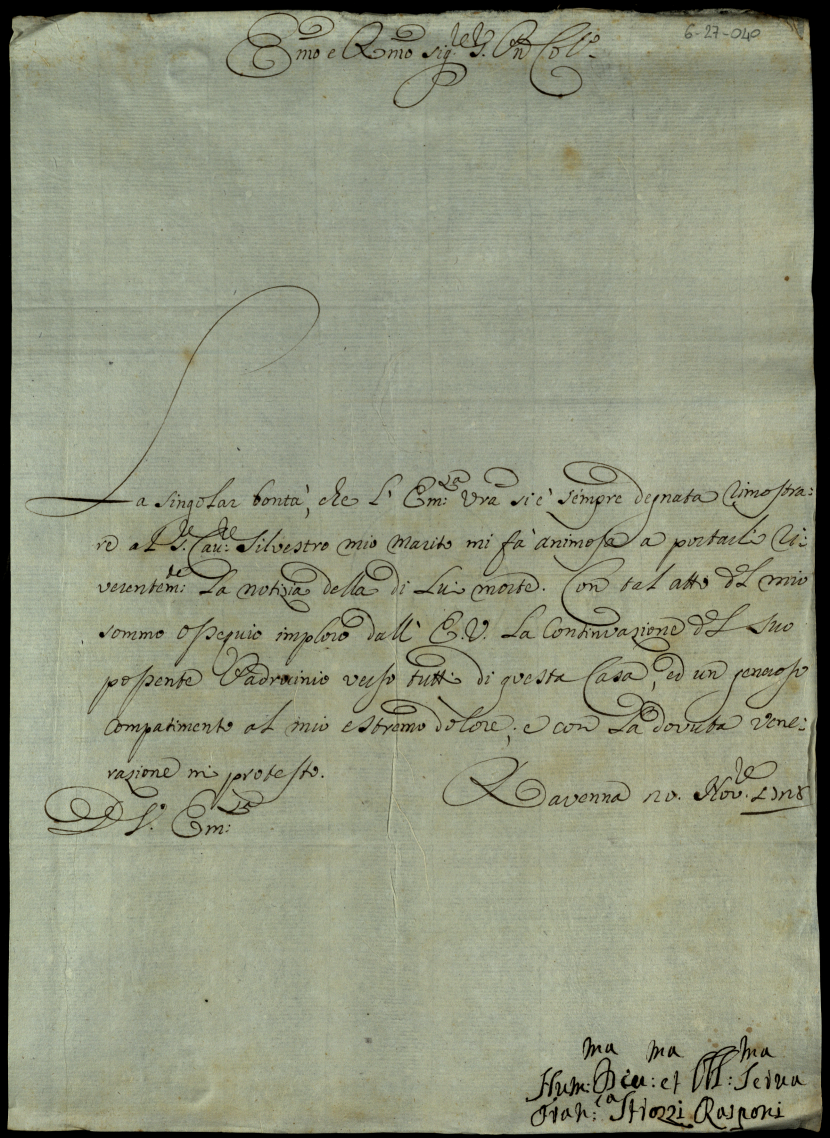 6-27-040
Emo e Rmo sig.re S. Pn Col.o
La singolar bontà, che L' Em:za Vra si è sempre degnata rimostra:
re al S.r Cau:re Silvestro mio Marito mi fà animosa a portarli ri:
verentem:te La notizia della di Lui morte. Con tal atto del mio
sommo ossequio imploro dall' E.V. La Continuazione del suo
possente Padrocinio verso tutti di questa Casa, ed un generoso
Compatimento al mio estremo dolore; e con La dovuta vene:
razione mi protesto.
D V.a Em:za
Ravenna Nov.re
Hum:ma Diu:ma et Obl:ma Serua
Fran:ca Strozzi Rasponi